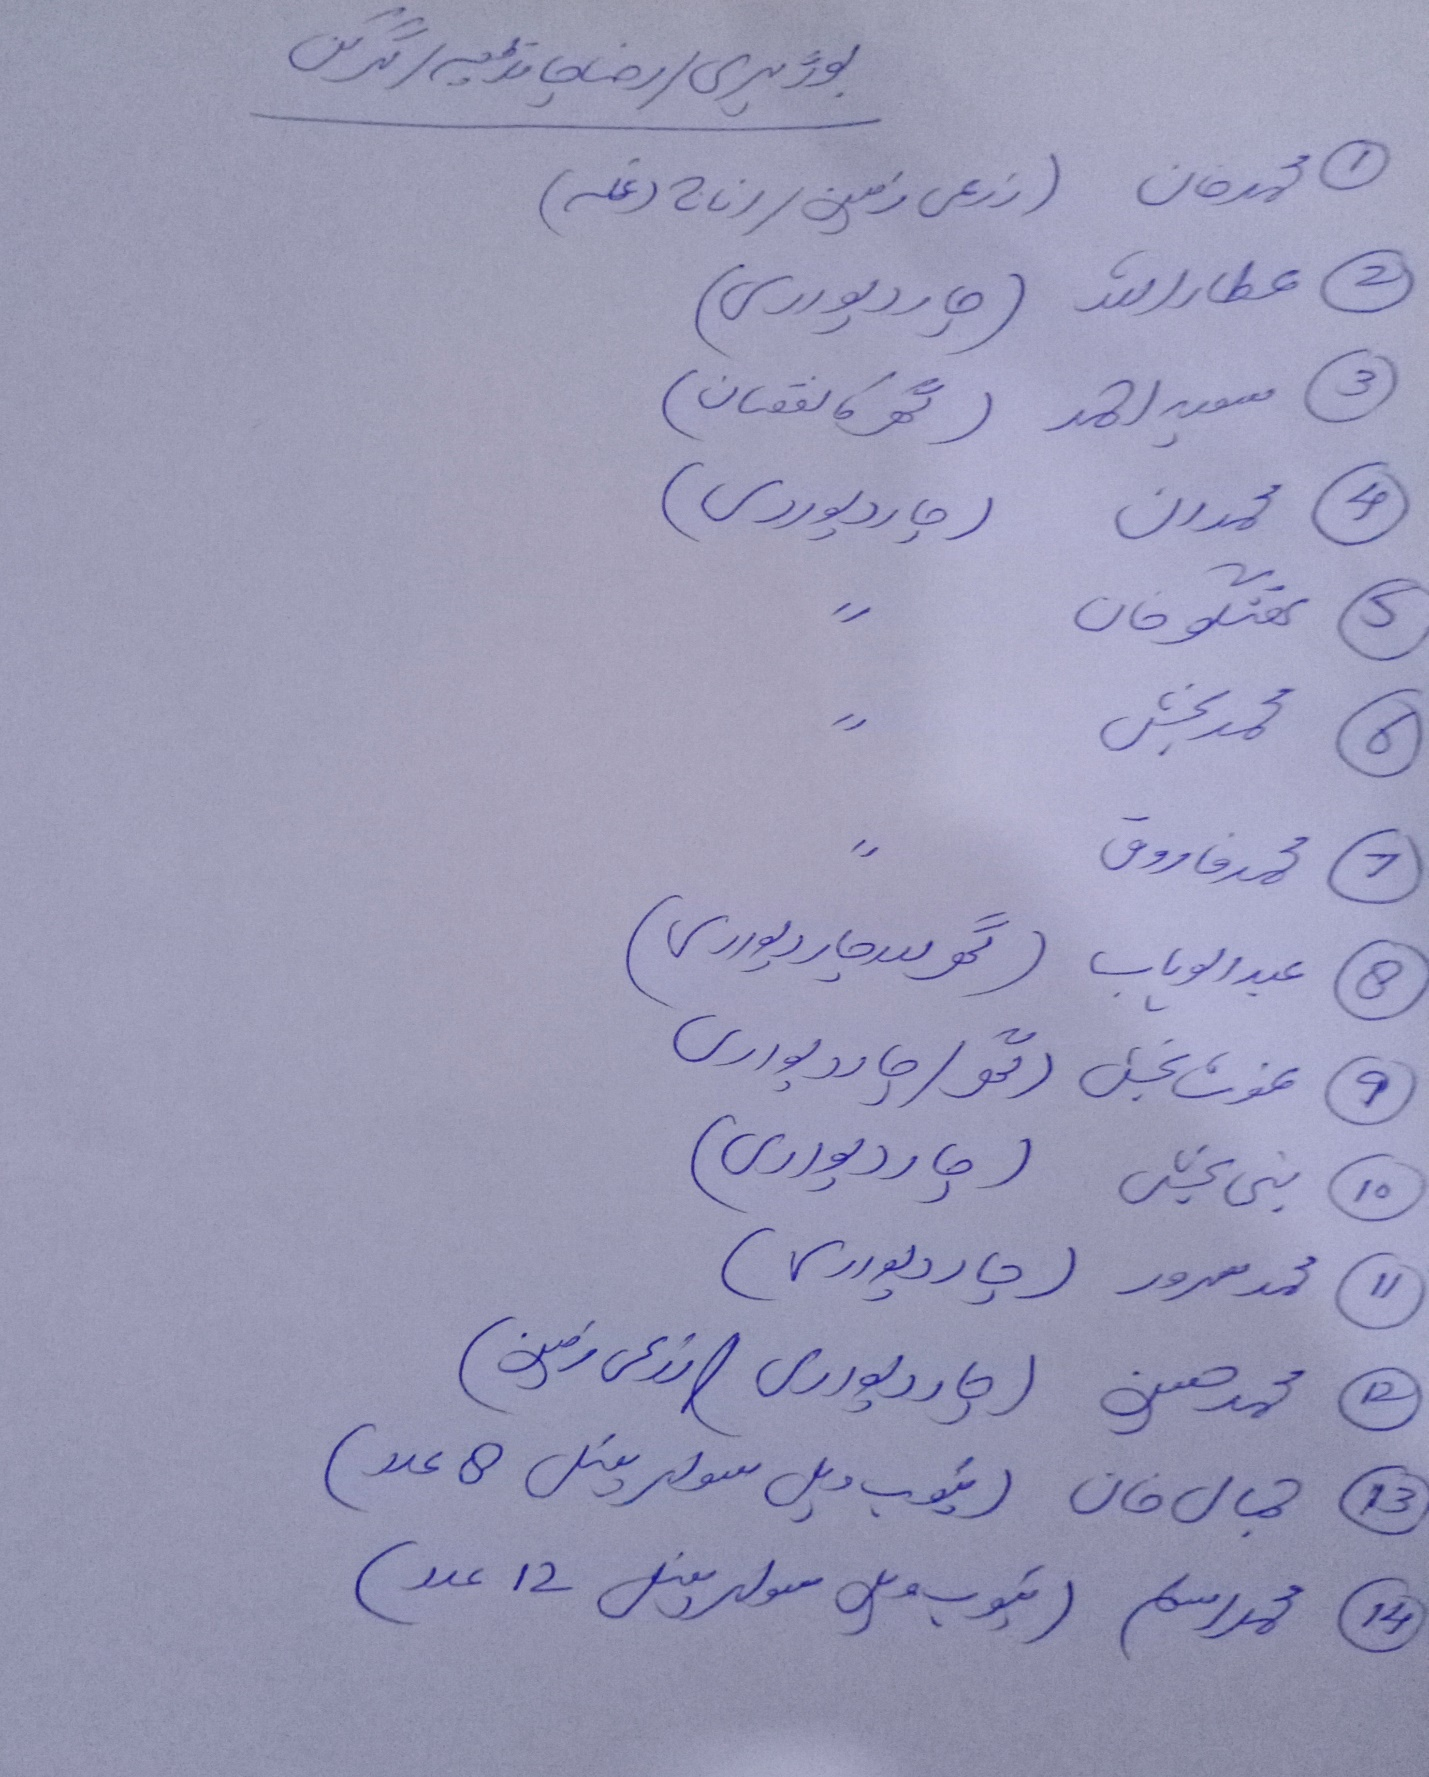 بوڑ پری / رضا چانڈیہ / گرگن
① محمد خان (زرعی زمین / اناج (غلہ)
② عطاء اللہ (چار دیواری)
③ سعید احمد (گھر کا نقصان)
④ محمد (چار دیواری)
⑤ خان "
⑥ محمد بخش "
⑦ محمد فاروق "
⑧ عبدالوہاب (گھر چار دیواری)
⑨ غوث بخش (گھر / چار دیواری
⑩ نبی بخش (چار دیواری)
⑪ محمد سرور (چار دیواری)
⑫ محمد حسین (چار دیواری / زرعی زمین)
⑬ جمال خان (ٹیوب ویل سولر پینل 8 عدد)
⑭ محمد اسلم (ٹیوب ویل سولر پینل 12 عدد)